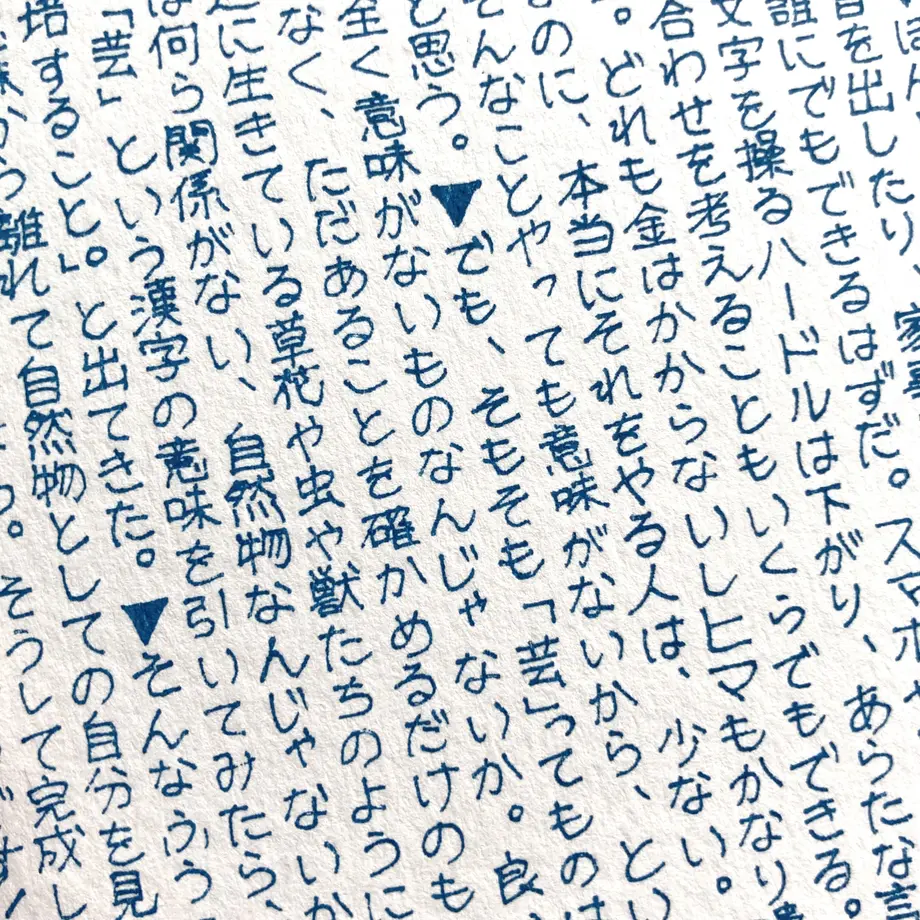 ほん、
音を出したり、家事
誰にでもできるはずだ。スマホ
文字を操るハードルは下がり、あらたな言
合わせを考えることもいくらでもできる。
。どれも金はかからないしヒマもかなり
のに、本当にそれをやる人は、少ない。
そんなことやっても意味がないから、とい
と思う。▼でも、そもそも「芸」ってものは
全く意味がないものなんじゃないか。良
なく、ただあることを確かめるだけのも
に生きている草花や虫や獣たちのように
は何ら関係がない、自然物なんじゃないか
「芸」という漢字の意味を引いてみたら、
培すること。」と出てきた。▼そんなふう
から離れて自然物としての自分を見
。そうして完成し